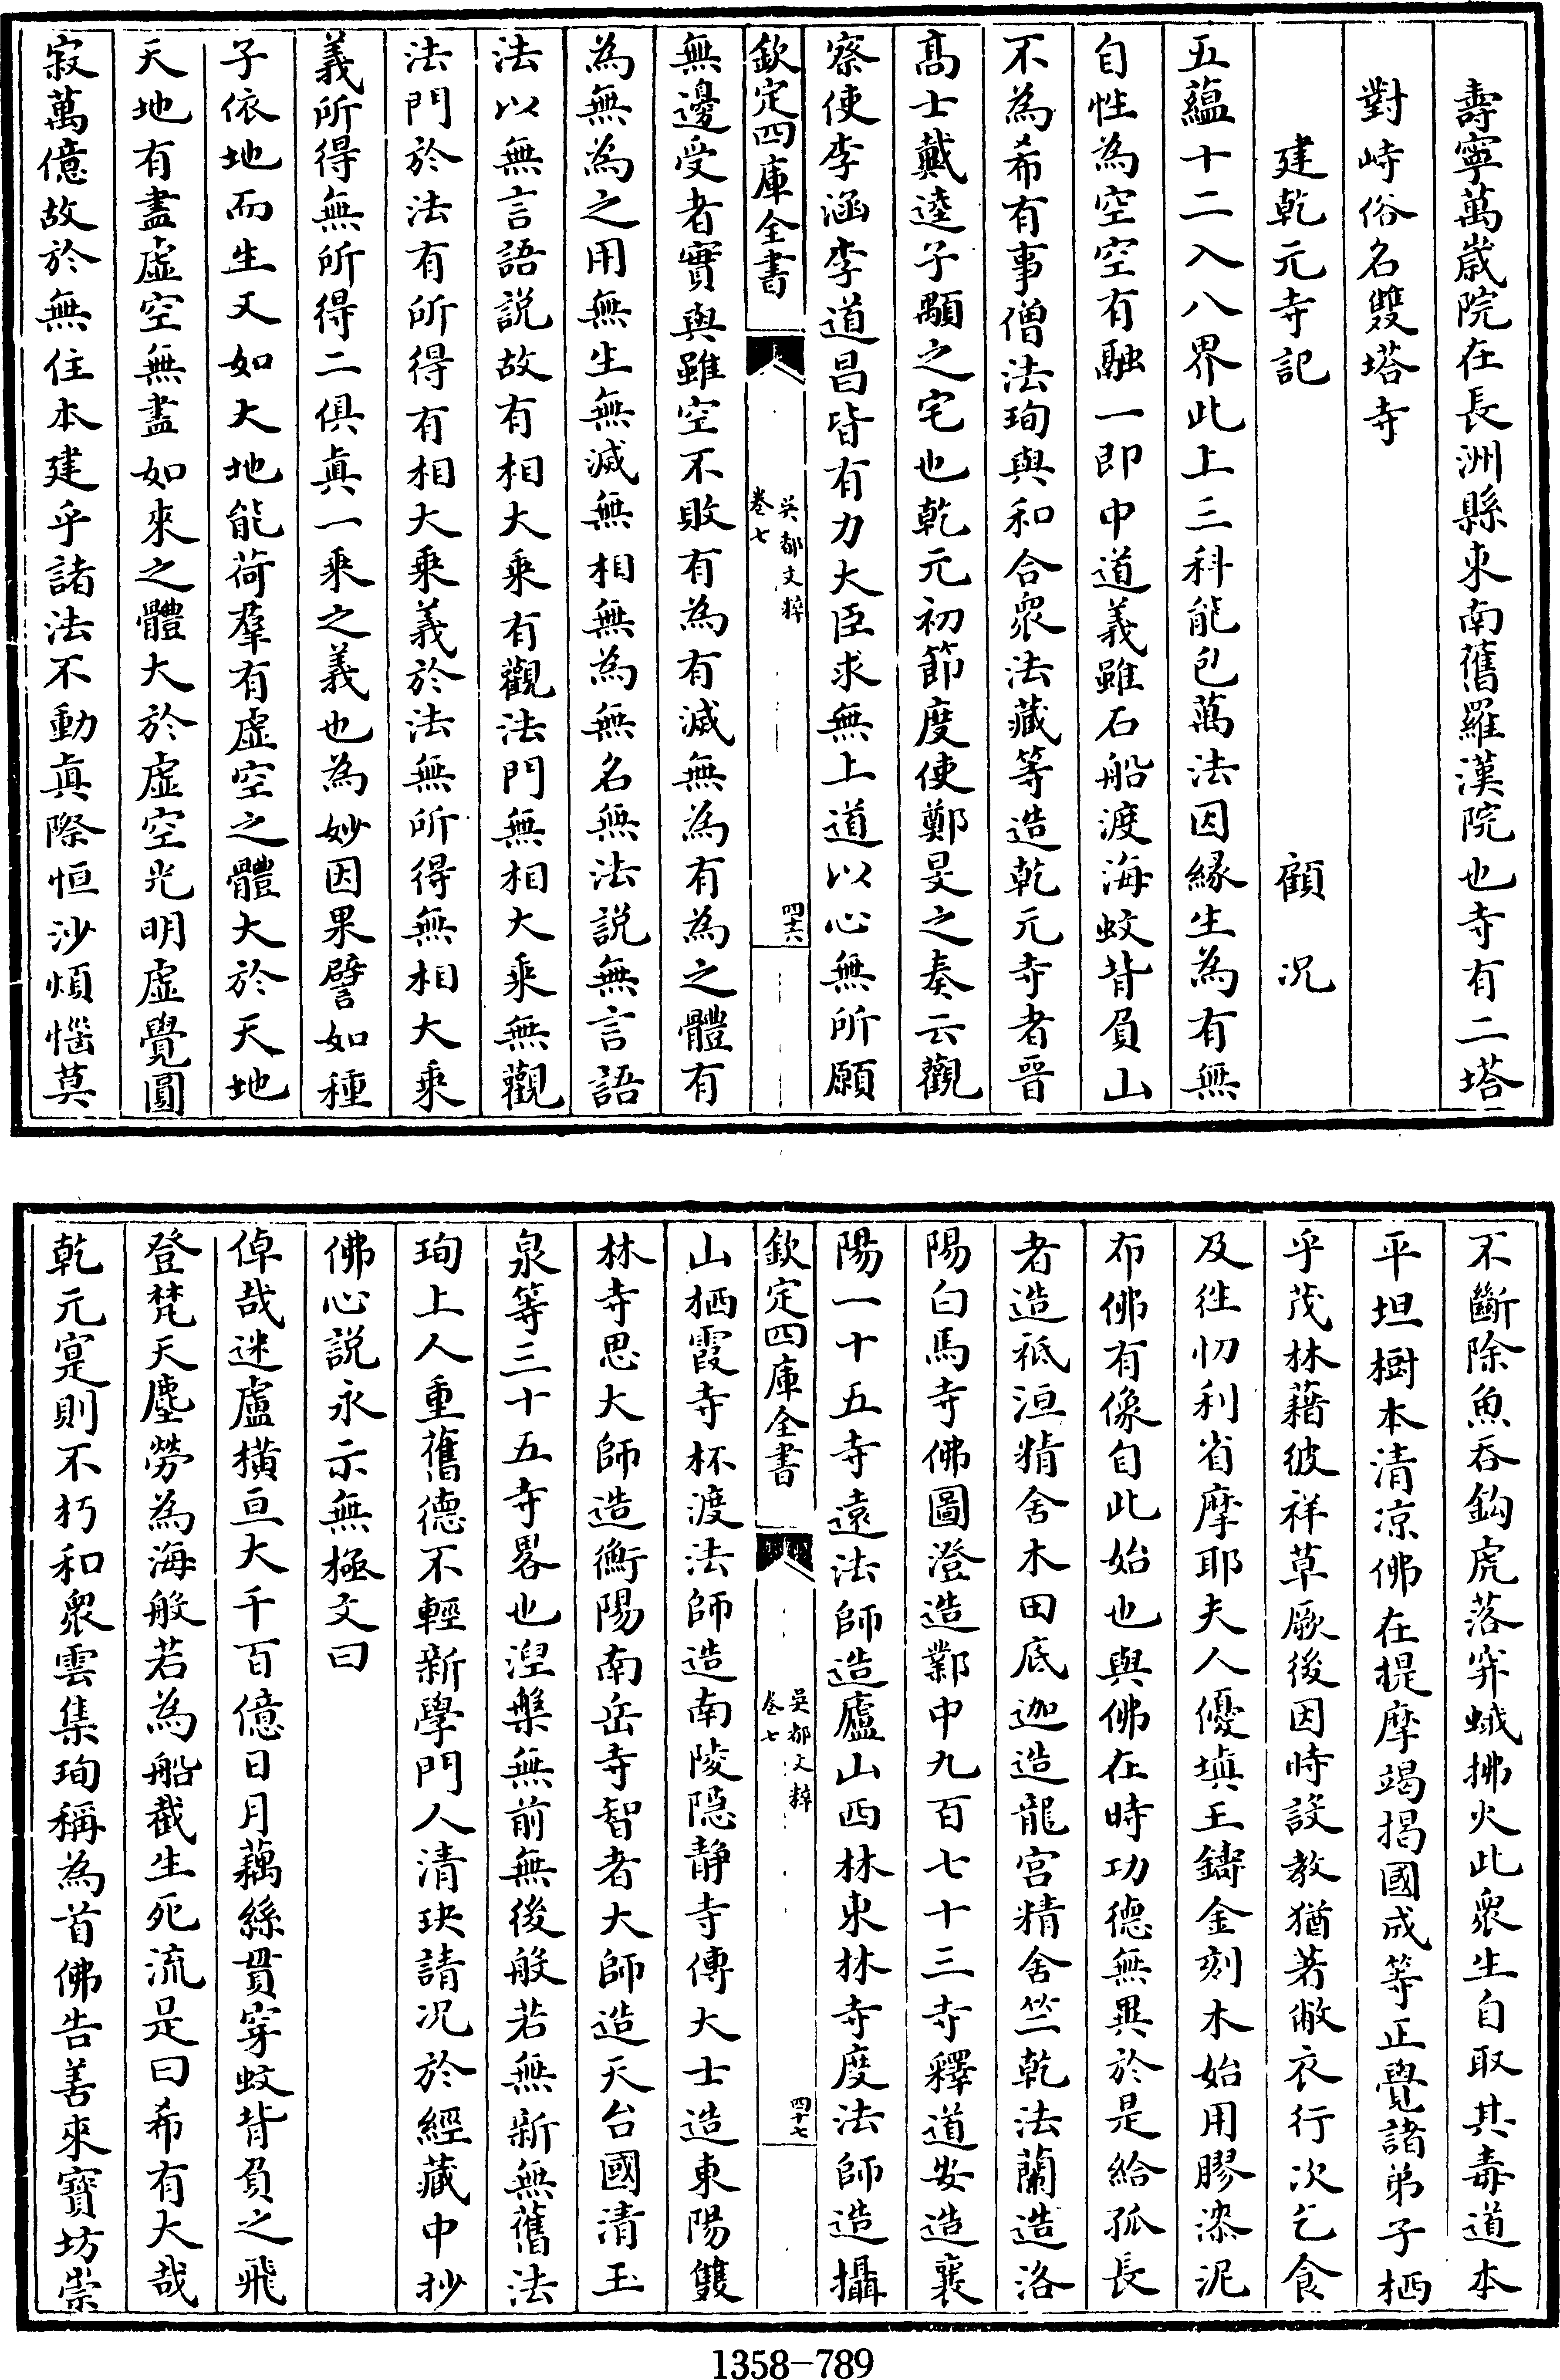 壽寧萬嵗院在長洲縣東南舊羅漢院也寺有二塔
對峙俗名雙塔寺
建乾元寺記 顧況
五藴十二入八界此上三科能包萬法因緣生為有無
自性為空空有融一即中道義雖石船渡海蚊背負山
不為希有事僧法珣與和合衆法藏等造乾元寺者晉
髙士戴逵子顒之宅也乾元初節度使鄭旻之奏云觀
察使李涵李道昌皆有力大臣求無上道以心無所願
欽定四庫全書
吳都文粹
卷七
四十六
無邊受者實與雖空不敗有為有滅無為有為之體有
為無為之用無生無滅無相無為無名無法説無言語
法以無言語説故有相大乗有觀法門無相大乗無觀
法門於法有所得有相大乗義於法無所得無相大乗
義所得無所得二俱眞一乗之義也為妙因果譬如種
子依地而生又如大地能荷羣有虚空之體大於天地
天地有盡虚空無盡如來之體大於虚空光明虚覺圓
寂萬億故於無住本建乎諸法不動眞際恒沙煩惱莫
不斷除魚吞鈎虎落穽蛾拂火此衆生自取其毒道本
平坦樹本清凉佛在提摩竭掲國成等正覺諸弟子栖
乎茂林藉彼祥草厥後因時設教猶著敝衣行次乞食
及徃忉利省摩耶夫人優填王鑄金刻木始用膠漆泥
布佛有像自此始也與佛在時功德無異於是給孤長
者造祗洹精舍木田底迦造龍宫精舍竺乾法蘭造洛
陽白馬寺佛圖澄造鄴中九百七十三寺釋道安造襄
陽一十五寺遠法師造廬山西林東林寺度法師造攝
欽定四庫全書
吳都文粹
卷七
四十七
山栖霞寺杯渡法師造南陵隠静寺傳大士造東陽雙
林寺思大師造衡陽南岳寺智者大師造天台國清玉
泉等三十五寺畧也涅槃無前無後般若無新無舊法
珣上人重舊德不輕新學門人清玦請况於經藏中抄
佛心説永示無極文曰
倬哉迷盧横亘大千百億日月藕絲貫穿蚊背負之飛
登梵天塵勞為海般若為船截生死流是曰希有大哉
乾元寔則不朽和衆雲集珣稱為首佛告善來寳坊崇
1358-789